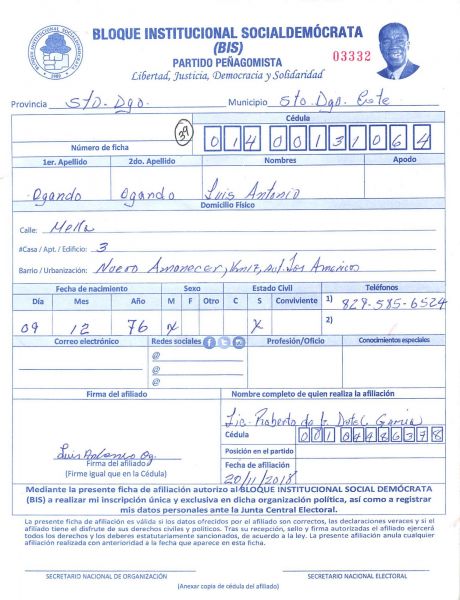 BLOQUE INSTITUCIONAL SOCIALDEMÓCRATA
(BIS)
PARTIDO PEÑAGOMISTA
Libertad, Justicia, Democracia y Solidaridad
03332
Provincia Sto. Dgo. Municipio Sto Dgo Este
Cédula
39
Número de ficha 0 1 4 0 0 1 3 1 0 6 4
1er. Apellido 2do. Apellido Nombres Apodo
Ogando Ogando Luis Antonio
Domicilio Físico
Calle: Mella
#Casa / Apt. / Edificio: 3
Barrio / Urbanización: Nuevo Amanecer, Aut. Las Américas
Fecha de nacimiento Sexo Estado Civil Teléfonos
Día Mes Año M F Otro C S Conviviente 1) 829-585-6524
09 12 76 X X 2)
Correo electrónico Redes sociales Profesión/Oficio Conocimientos especiales
@
@
@
Firma del afiliado Nombre completo de quien realiza la afiliación
Lic. Roberto de García
Cédula 0 0 1 0 4 4 8 6 3 7 8
Luis Antonio Og.
Firma del afiliado)
(Firme igual que en la Cédula)
Posición en el partido
Fecha de afiliación
20/11/2018
Mediante la presente ficha de afiliación autorizo al BLOQUE INSTITUCIONAL SOCIAL DEMÓCRATA
(BIS) a realizar mi inscripción única y exclusiva en dicha organización política, así como a registrar
mis datos personales ante la Junta Central Electoral.
La presente ficha de afiliación es válida si los datos ofrecidos por el afiliado son correctos, las declaraciones veraces y si el
afiliado tiene el disfrute de sus derechos civiles y políticos. Tras su recepción, sello y firma autorizadas el afiliado ejercerá
todos los derechos y los deberes estatutariamente sancionados, de acuerdo a la ley. La presente afiliación anula cualquier
afiliación realizada con anterioridad a la fecha que aparece en esta ficha.
SECRETARIO NACIONAL DE ORGANIZACIÓN SECRETARIO NACIONAL ELECTORAL
(Anexar copia de cédula del afiliado)